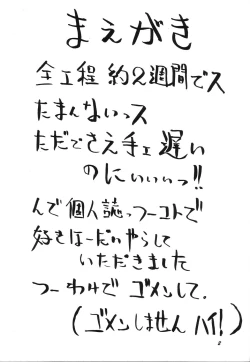 まえがき
全工程約2週間でス
たまんないっス
ただでさえ手ェ遅い
のにぃぃぃっ!!
んで個人誌っつーコトで
好きほーだいやらして
いただきました
つーわけでゴメンして。
(ゴメンしませんハイ!)